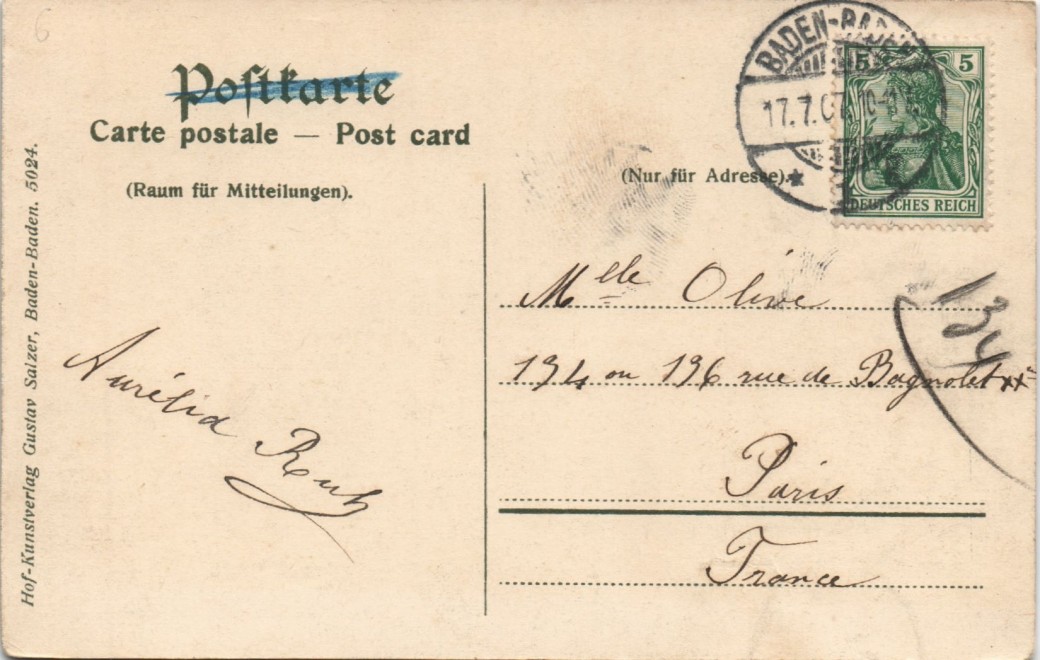 6
Postkarte
Carte postale — Post card
(Raum für Mitteilungen).
(Nur für Adresse).
BADEN-BADEN
17.7.07
5 5
DEUTSCHES REICH
Mlle Olive
134 ou 136 rue de Bagnolet xxe
Paris
France
134
Aurélia
Hof-Kunstverlag Gustav Salzer, Baden-Baden. 5024.